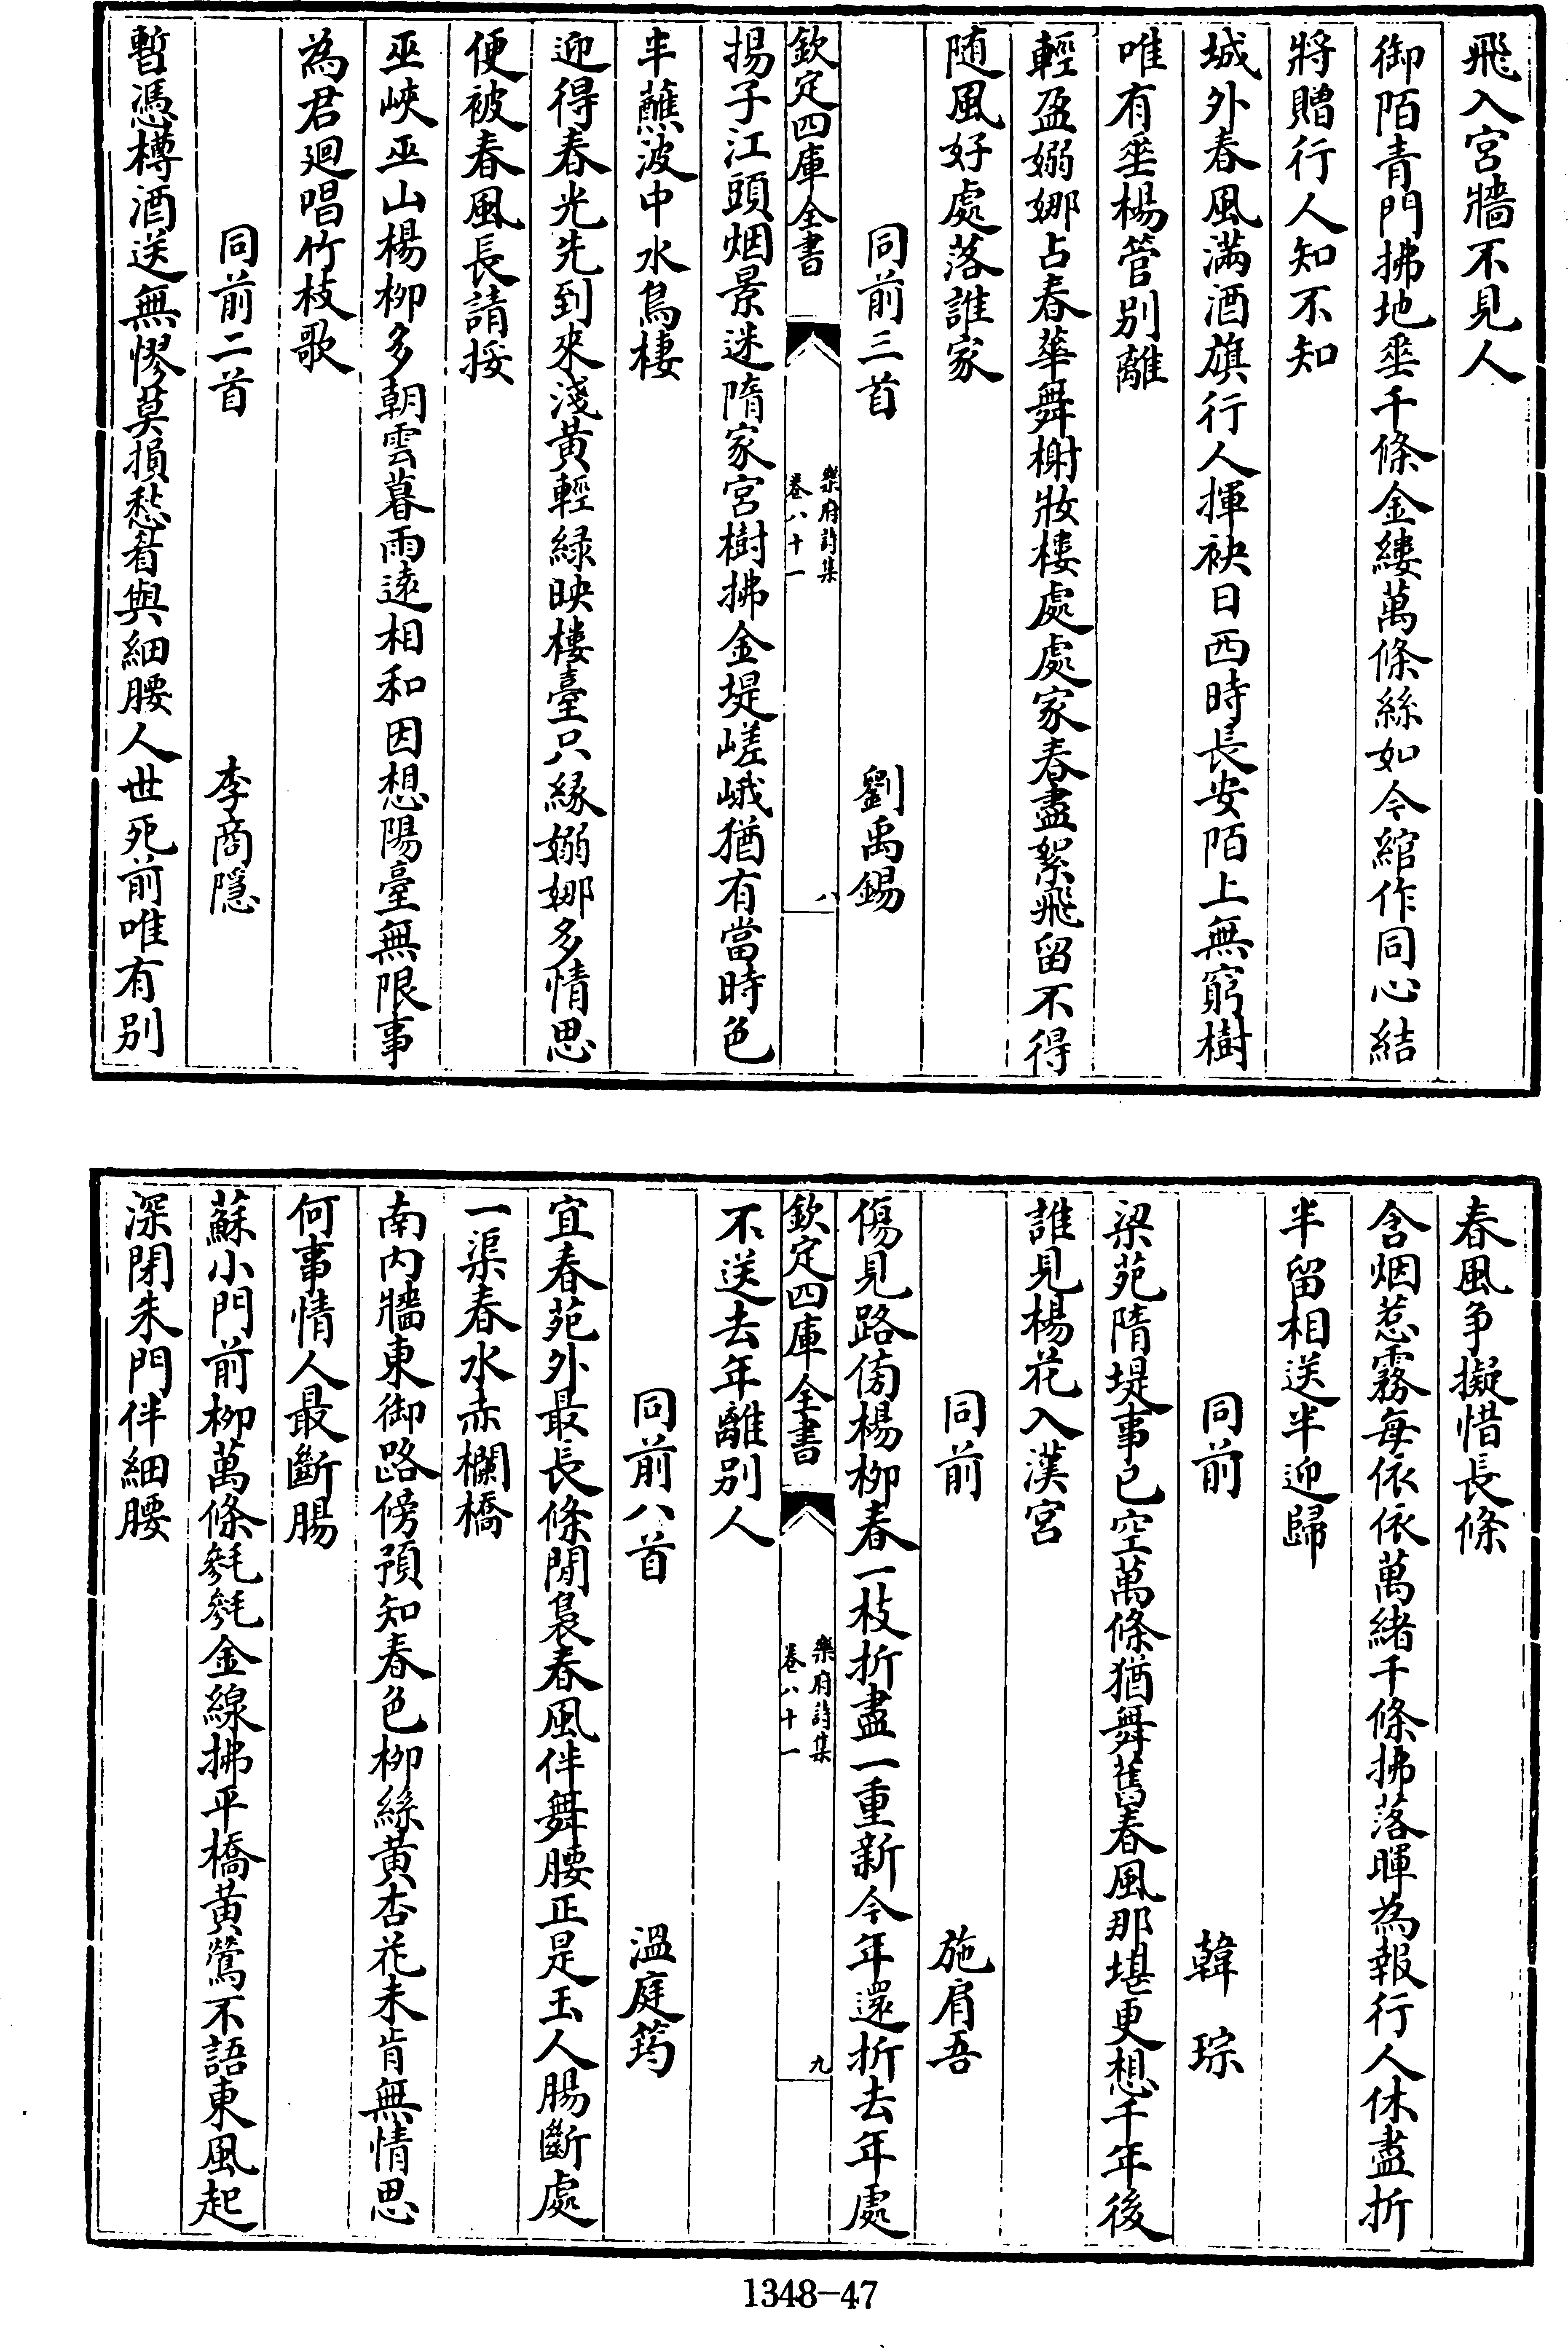 飛入宮牆不見人
御陌青門拂地垂千條金縷萬條絲如今綰作同心結
將贈行人知不知
城外春風滿酒旗行人揮袂日西時長安陌上無窮樹
唯有垂楊管別離
輕盈嫋娜占春華舞榭妝樓處處家春盡絮飛留不得
随風好處落誰家
同前三首　劉禹錫
欽定四庫全書　樂府詩集卷八十一　八
揚子江頭烟景迷隋家宮樹拂金堤嵯峨猶有當時色
半蘸波中水鳥棲
迎得春光先到來淺黃輕緑映樓臺只緣嫋娜多情思
便被春風長請挼
巫峽巫山楊柳多朝雲暮雨逺相和因想陽臺無限事
為君廻唱竹枝歌
同前二首　李商隱
暫憑樽酒送無憀莫損愁眉與細腰人世死前唯有別
春風争擬惜長條
含烟惹霧每依依萬緒千條拂落暉為報行人休盡折
半留相送半迎歸
同前　韓琮
梁苑隋堤事已空萬條猶舞舊春風那堪更想千年後
誰見楊花入漢宮
同前　施肩吾
傷見路傍楊柳春一枝折盡一重新今年還折去年處
欽定四庫全書　樂府詩集卷八十一　九
不送去年離別人
同前八首　溫庭筠
宜春苑外最長條閒裊春風伴舞腰正是玉人腸斷處
一渠春水赤欄橋
南内牆東御路傍預知春色柳絲黃杏花未肯無情思
何事情人最斷腸
蘇小門前柳萬條毿毿金線拂平橋黃鶯不語東風起
深閉朱門伴細腰
1348-47